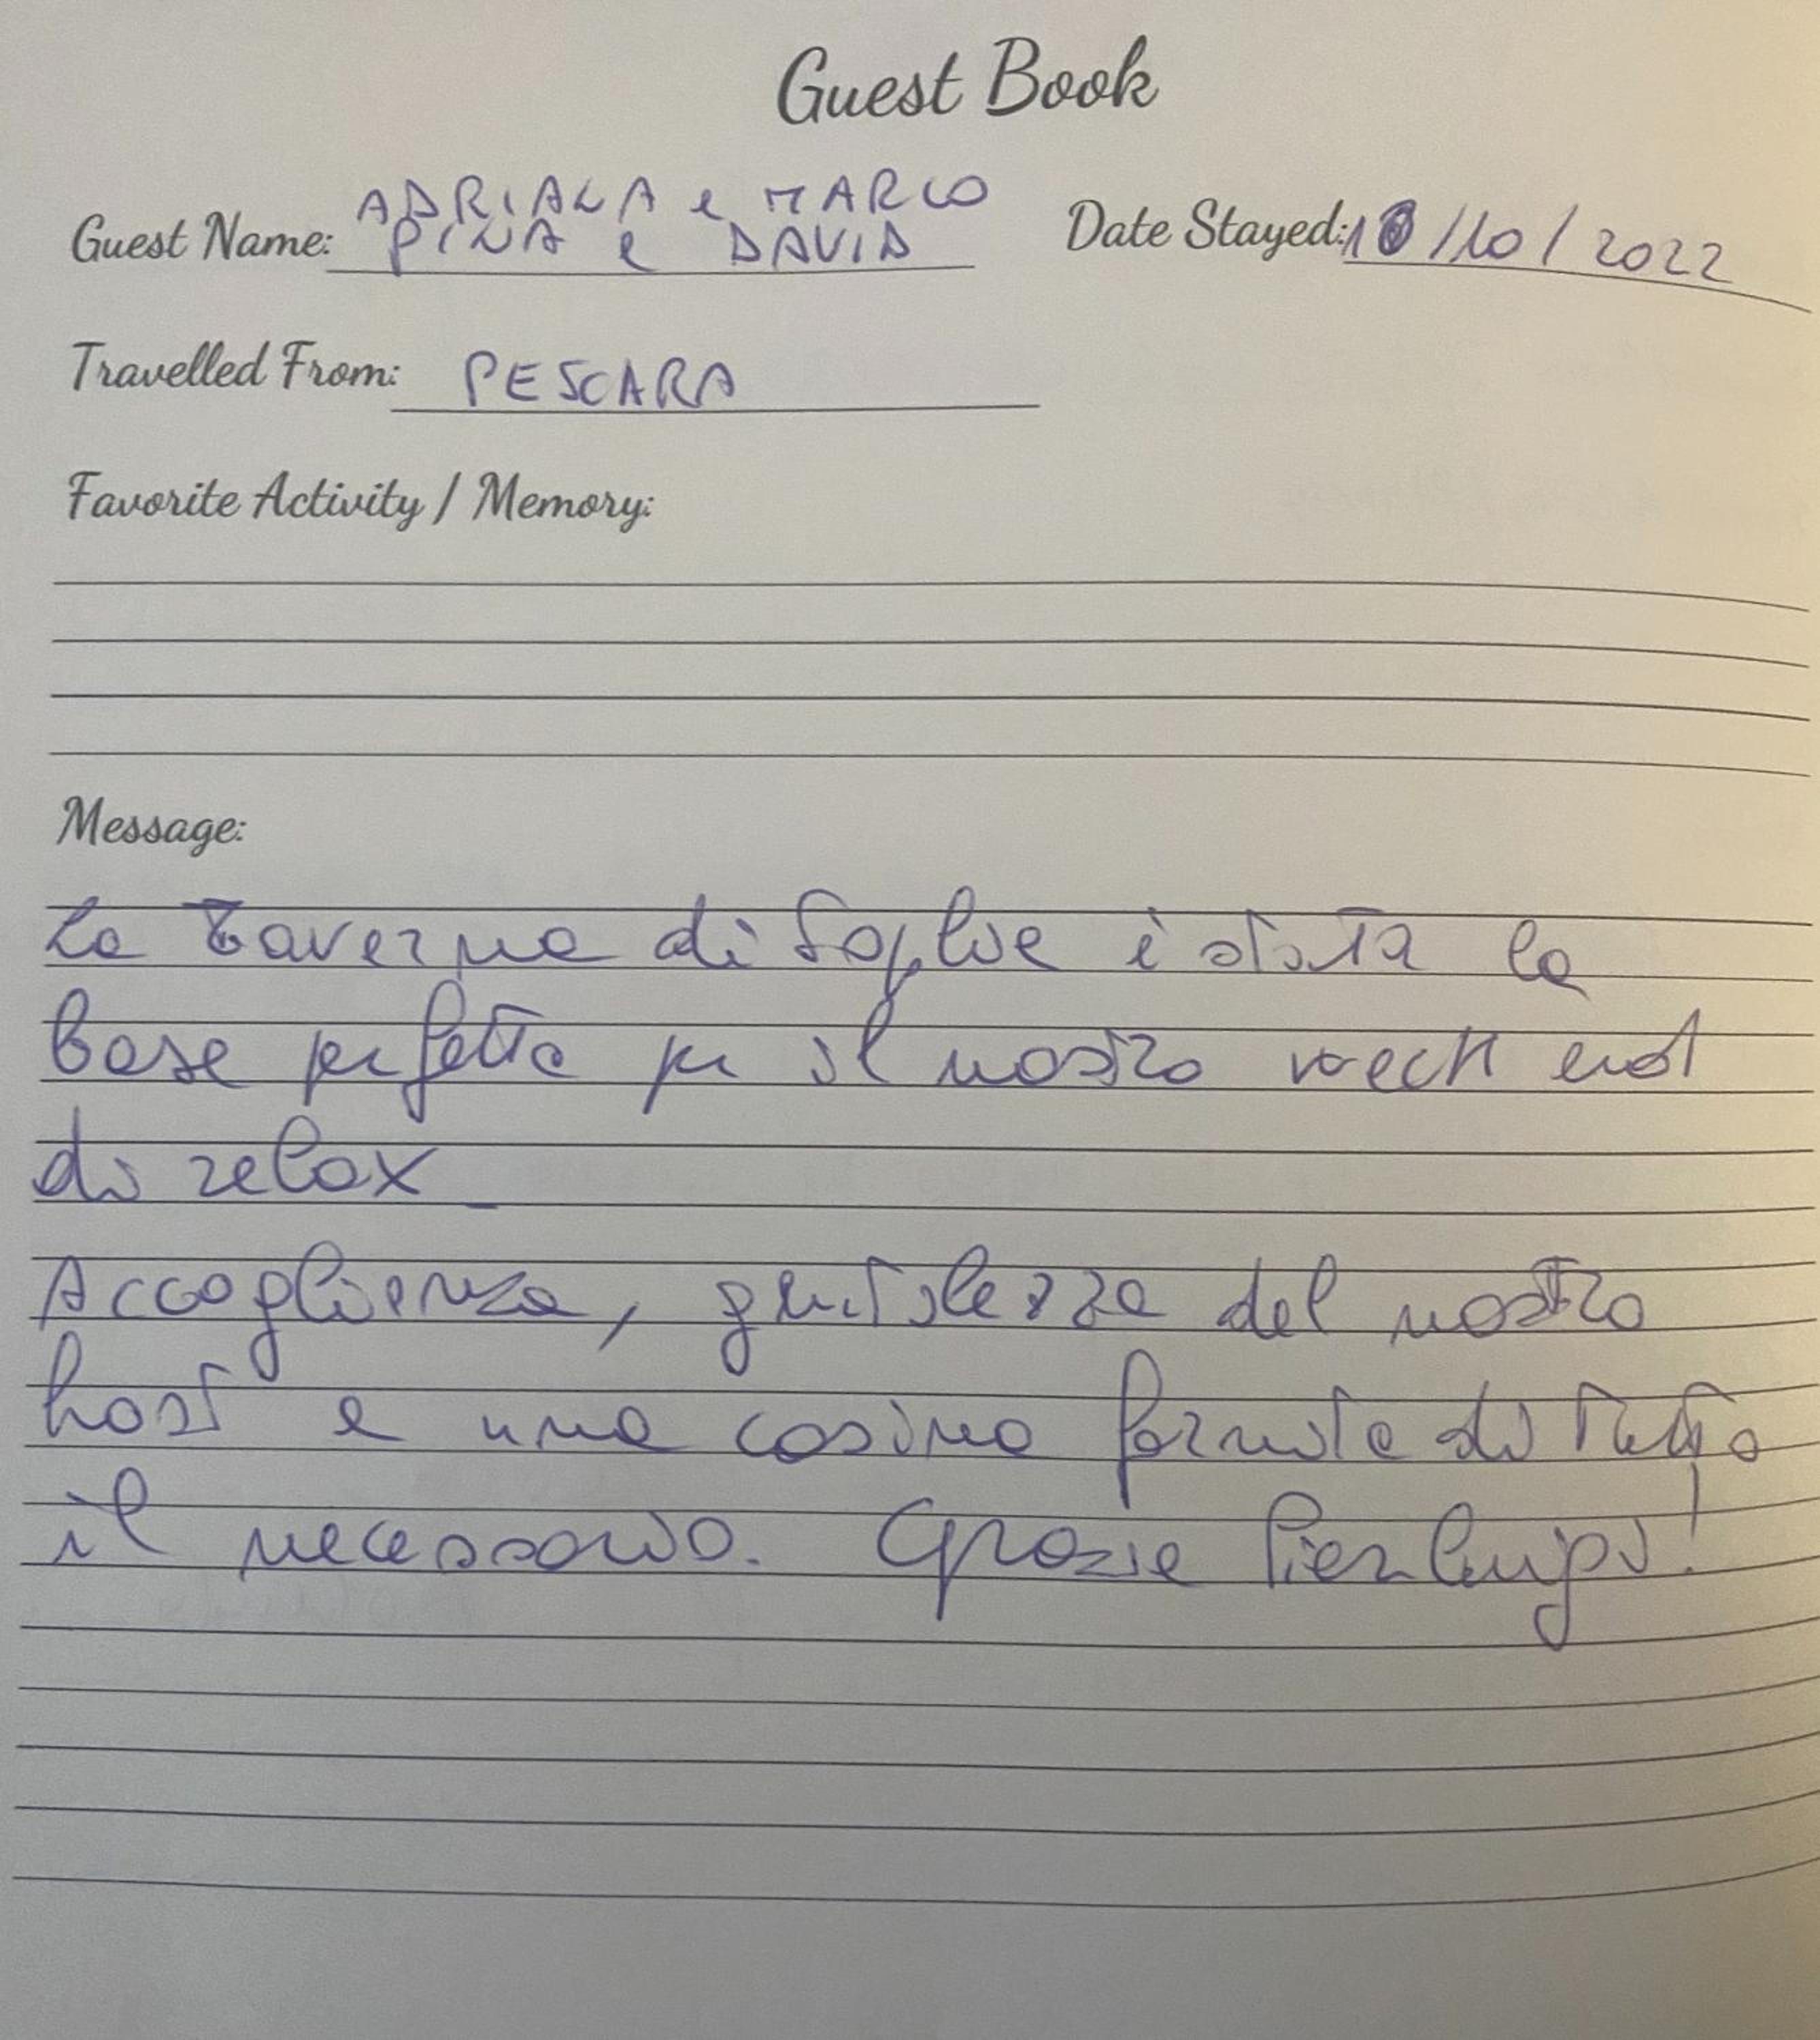 Guest Book
ADRIANA e MARCO
Guest Name: PINA e DAVID Date Stayed: /10/2022
Travelled From: PESCARA
Favorite Activity / Memory:
Message:
La Taverna di Sophie è stata la
base perfetta per il nostro week end
di relax
Accoglienza, gentilezza del nostro
host e una cosina fornita di tutto
il necessario. Grazie Pierluigi!